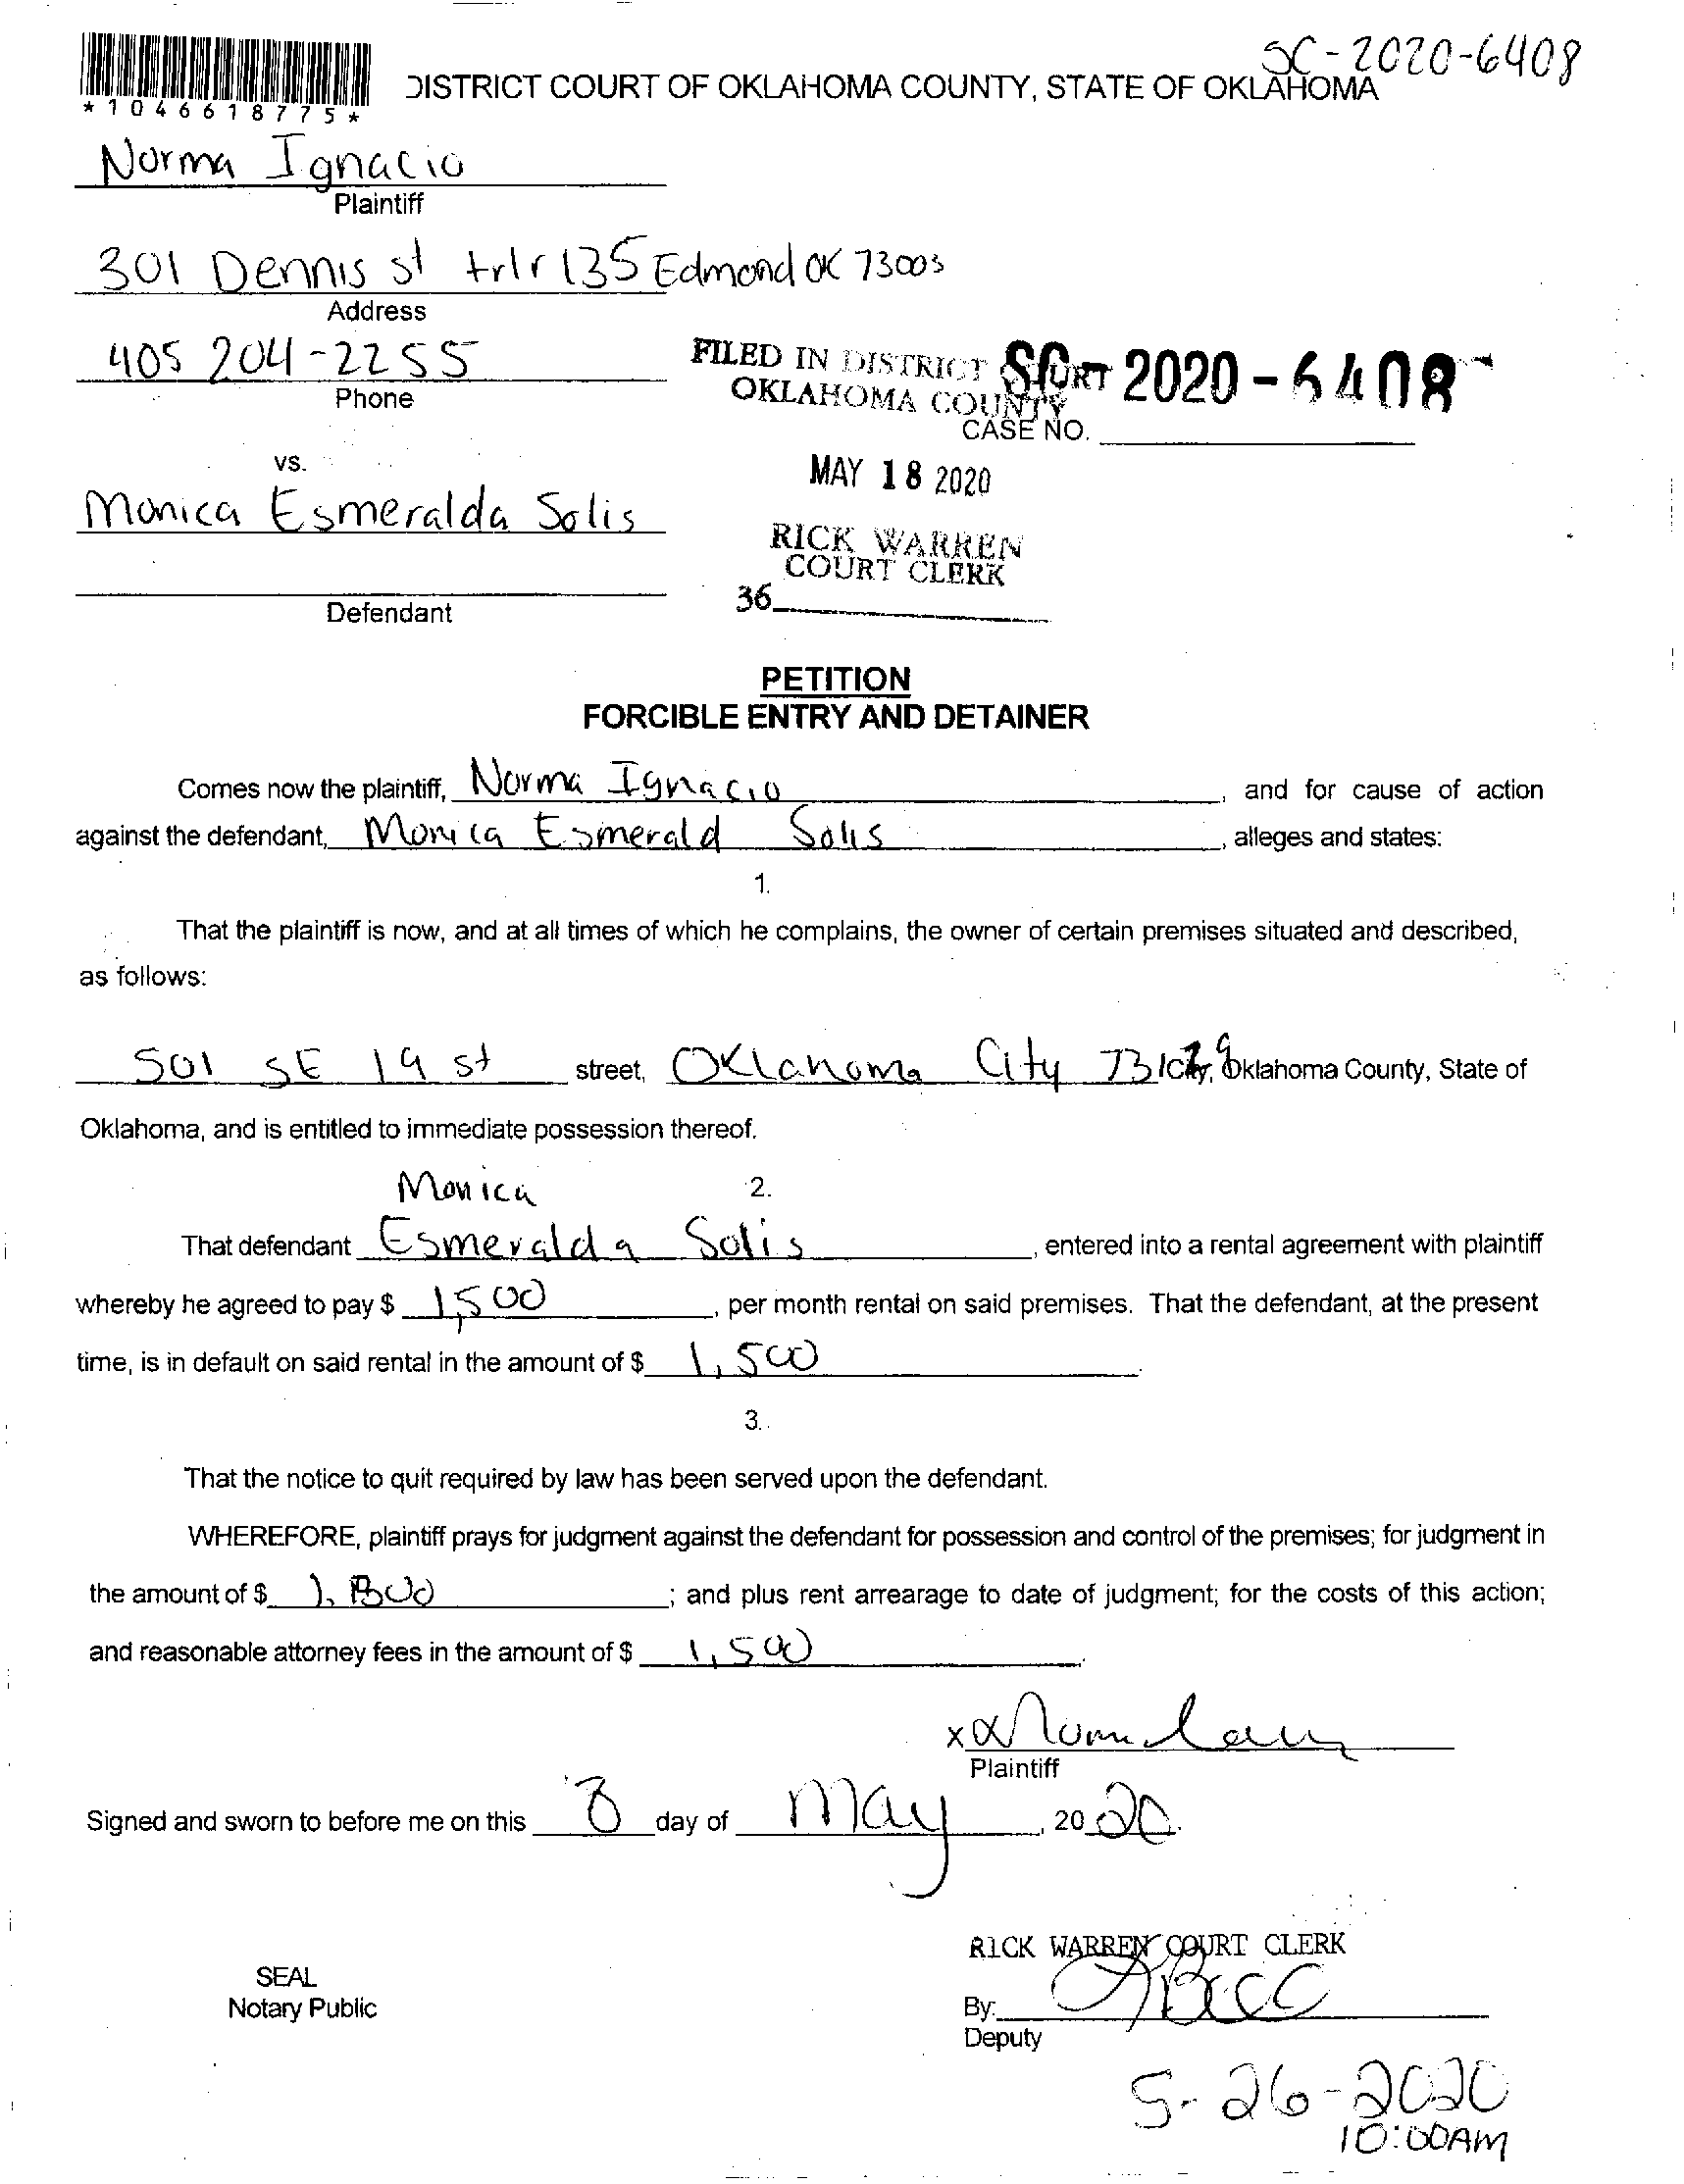 SC-2020-6408
DISTRICT COURT OF OKLAHOMA COUNTY, STATE OF OKLAHOMA
*1046618775*
Norma Ignacio
Plaintiff
301 Dennis st trlr 135 Edmond OK 73003
Address
405 204-2255
Phone
FILED IN DISTRICT COURT
OKLAHOMA COUNTY
SC 2020-6408
CASE NO.
vs.
MAY 18 2020
Monica Esmeralda Solis
RICK WARREN
COURT CLERK
36
Defendant
PETITION
FORCIBLE ENTRY AND DETAINER
Comes now the plaintiff, Norma Ignacio, and for cause of action
against the defendant, Monica Esmerald Solis, alleges and states:
1.
That the plaintiff is now, and at all times of which he complains, the owner of certain premises situated and described,
as follows:
501 SE 19 st street, Oklahoma City Oklahoma County, State of
Oklahoma, and is entitled to immediate possession thereof.
Monica
2.
That defendant Esmeralda Solis, entered into a rental agreement with plaintiff
whereby he agreed to pay $ 1,500, per month rental on said premises. That the defendant, at the present
time, is in default on said rental in the amount of $ 1,500.
3.
That the notice to quit required by law has been served upon the defendant.
WHEREFORE, plaintiff prays for judgment against the defendant for possession and control of the premises; for judgment in
the amount of $ ; and plus rent arrearage to date of judgment; for the costs of this action;
and reasonable attorney fees in the amount of $ 1,500.
x
Plaintiff
Signed and sworn to before me on this day of May, 2020.
RICK WARREN COURT CLERK
SEAL
Notary Public
By:
Deputy
5-26-2020
10:00AM